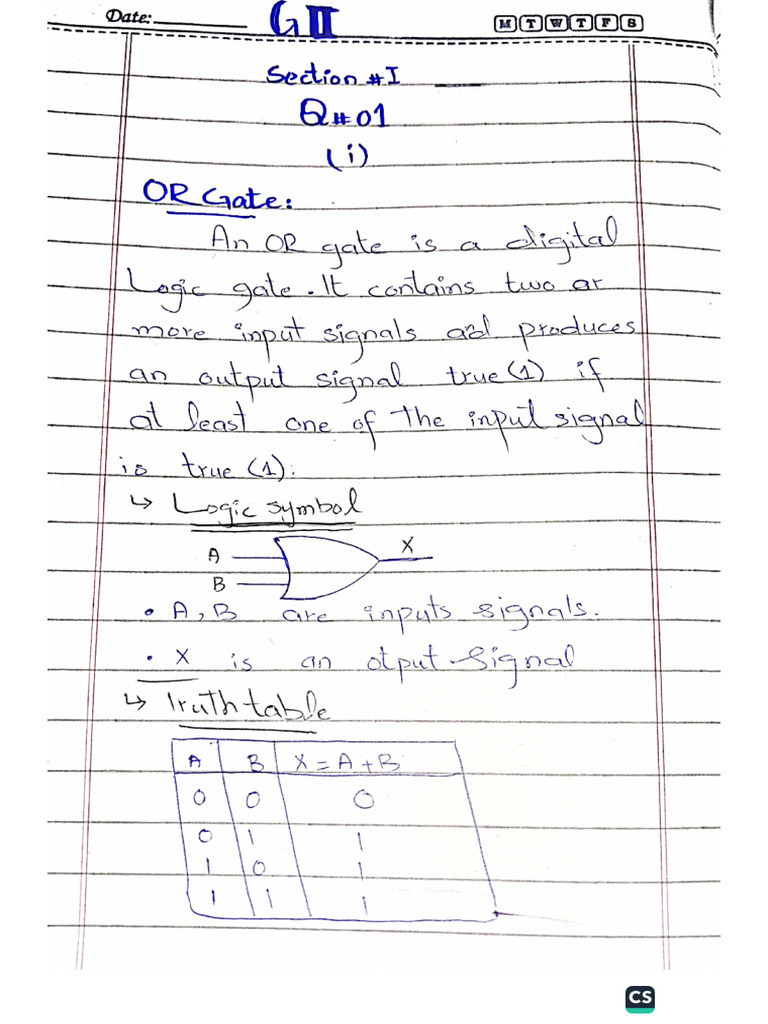 Date:
GII
M T W T F S
Section #I
Q#01
(i)
OR Gate:
An OR gate is a digital
Logic gate. It contains two ar
more input signals and produces
an output signal true (1) if
at least one of the input signal
is true (1).
↳ Logic symbol
A
X
B
• A, B are inputs signals.
• X is an otput signal
↳ Truth table
A B X = A + B
0 0 0
0 1 1
1 0 1
1 1 1
CS